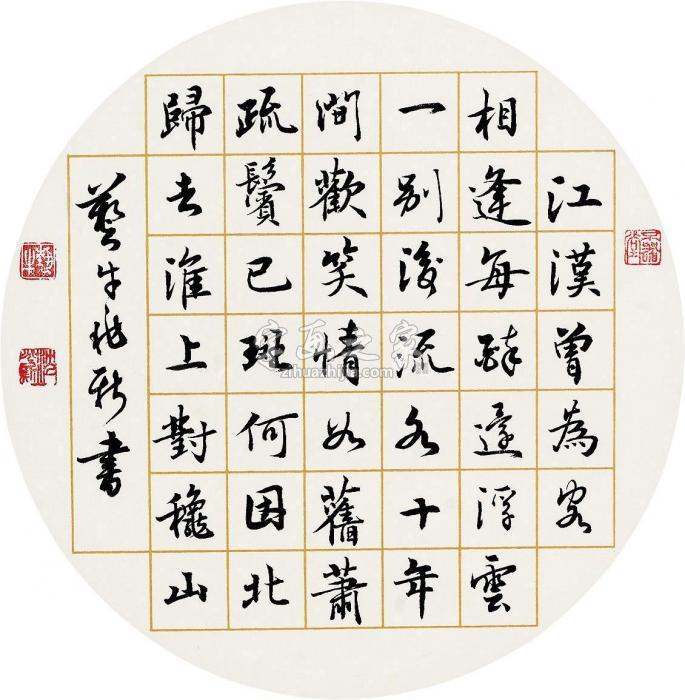 江漢曾為客
相逢每醉還浮雲
一別後流水十年
間歡笑情如舊蕭
疏鬢已斑何因北
歸去淮上對穐山
書
字画之家
zihuazhijia.com